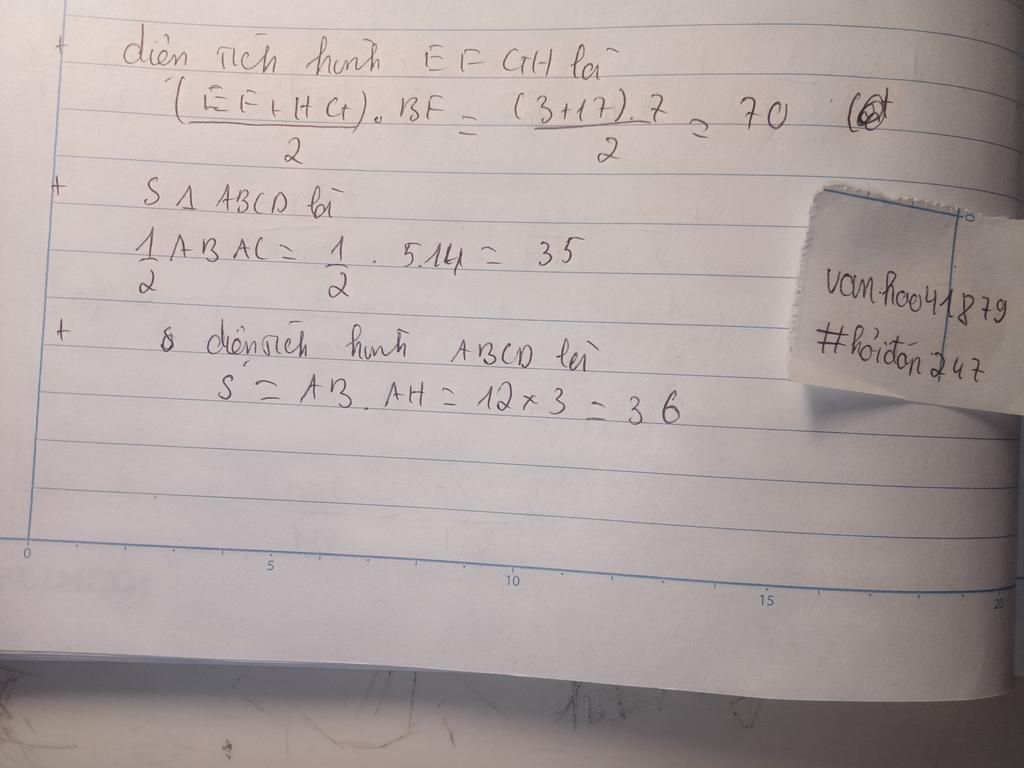 + diện tích hình EFGH là
(EF+HG).BF / 2 = (3+17).7 / 2 = 70
+ S Δ ABCD là
1/2 AB AC = 1/2 . 5.14 = 35
+ diện tích hình ABCD là
S = AB.AH = 12 x 3 = 36
vanhao41879
#hỏiđáp247
0 5 10 15 20